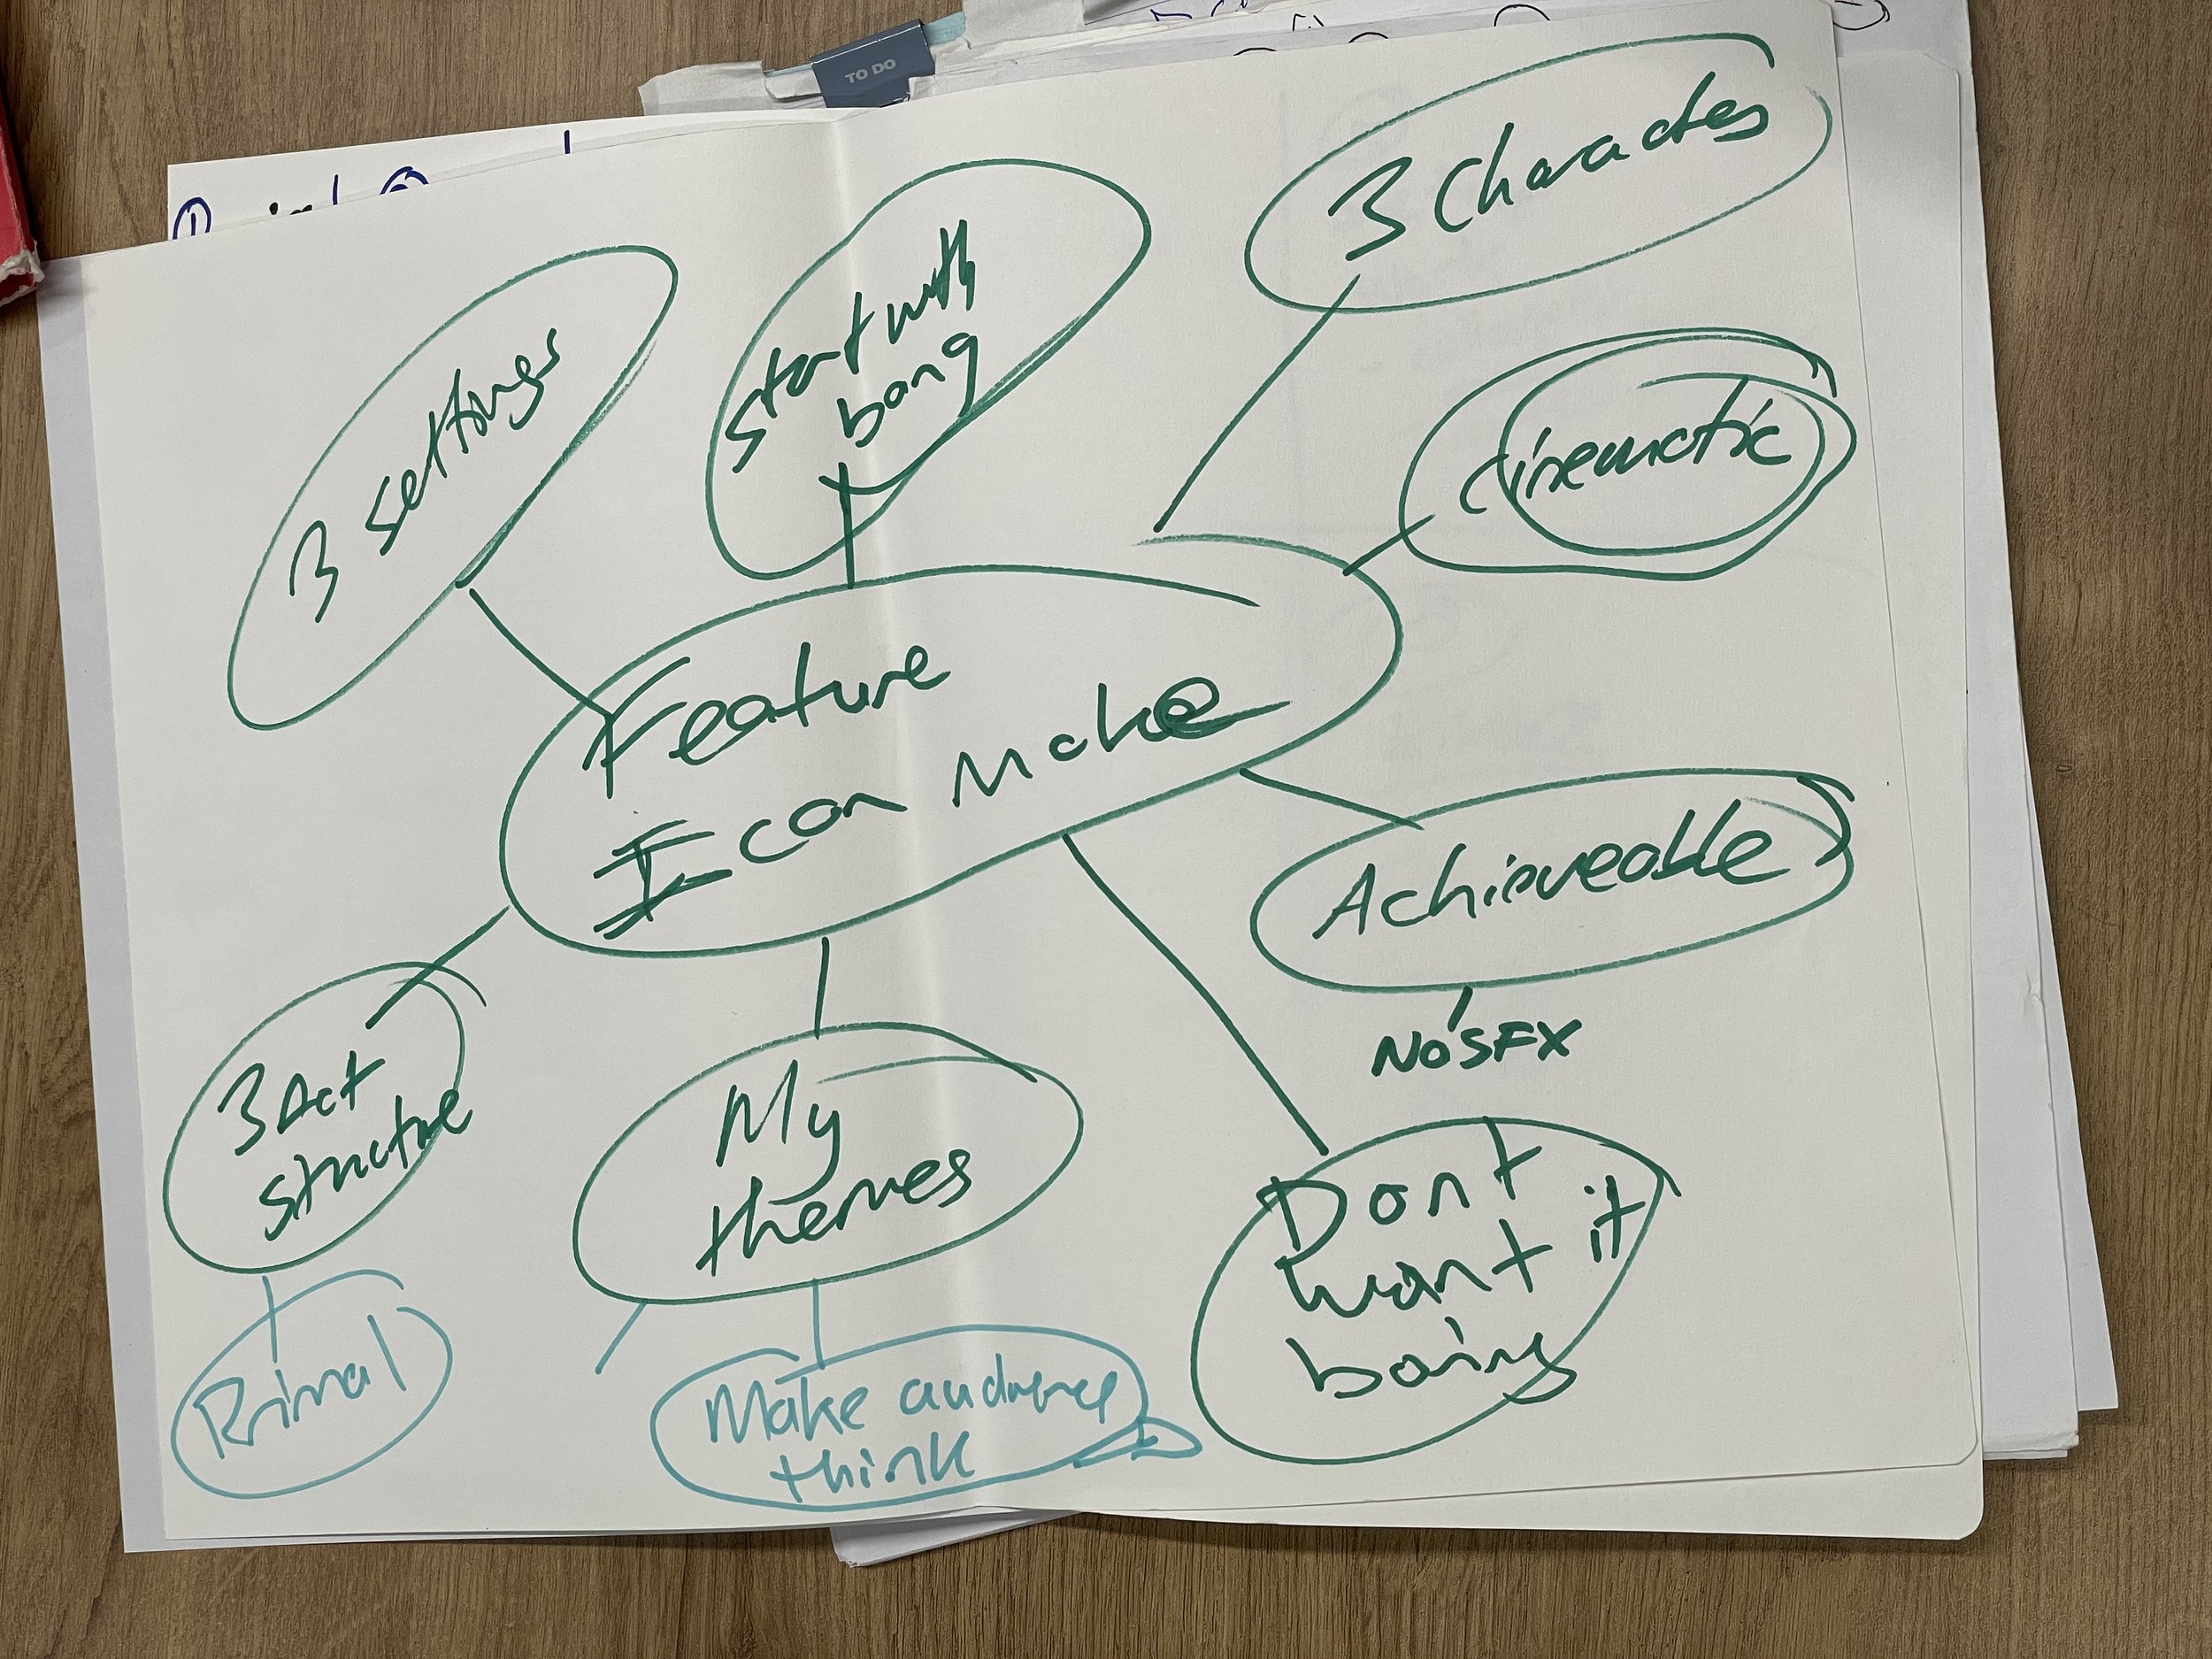 TO DO
3 Charactes
start with
bang
3 settings
Cinematic
Feature
I can Make
Achieveable
NO SFX
3 Act
structure
My
themes
Dont
want it
boring
Primal
Make audience
think